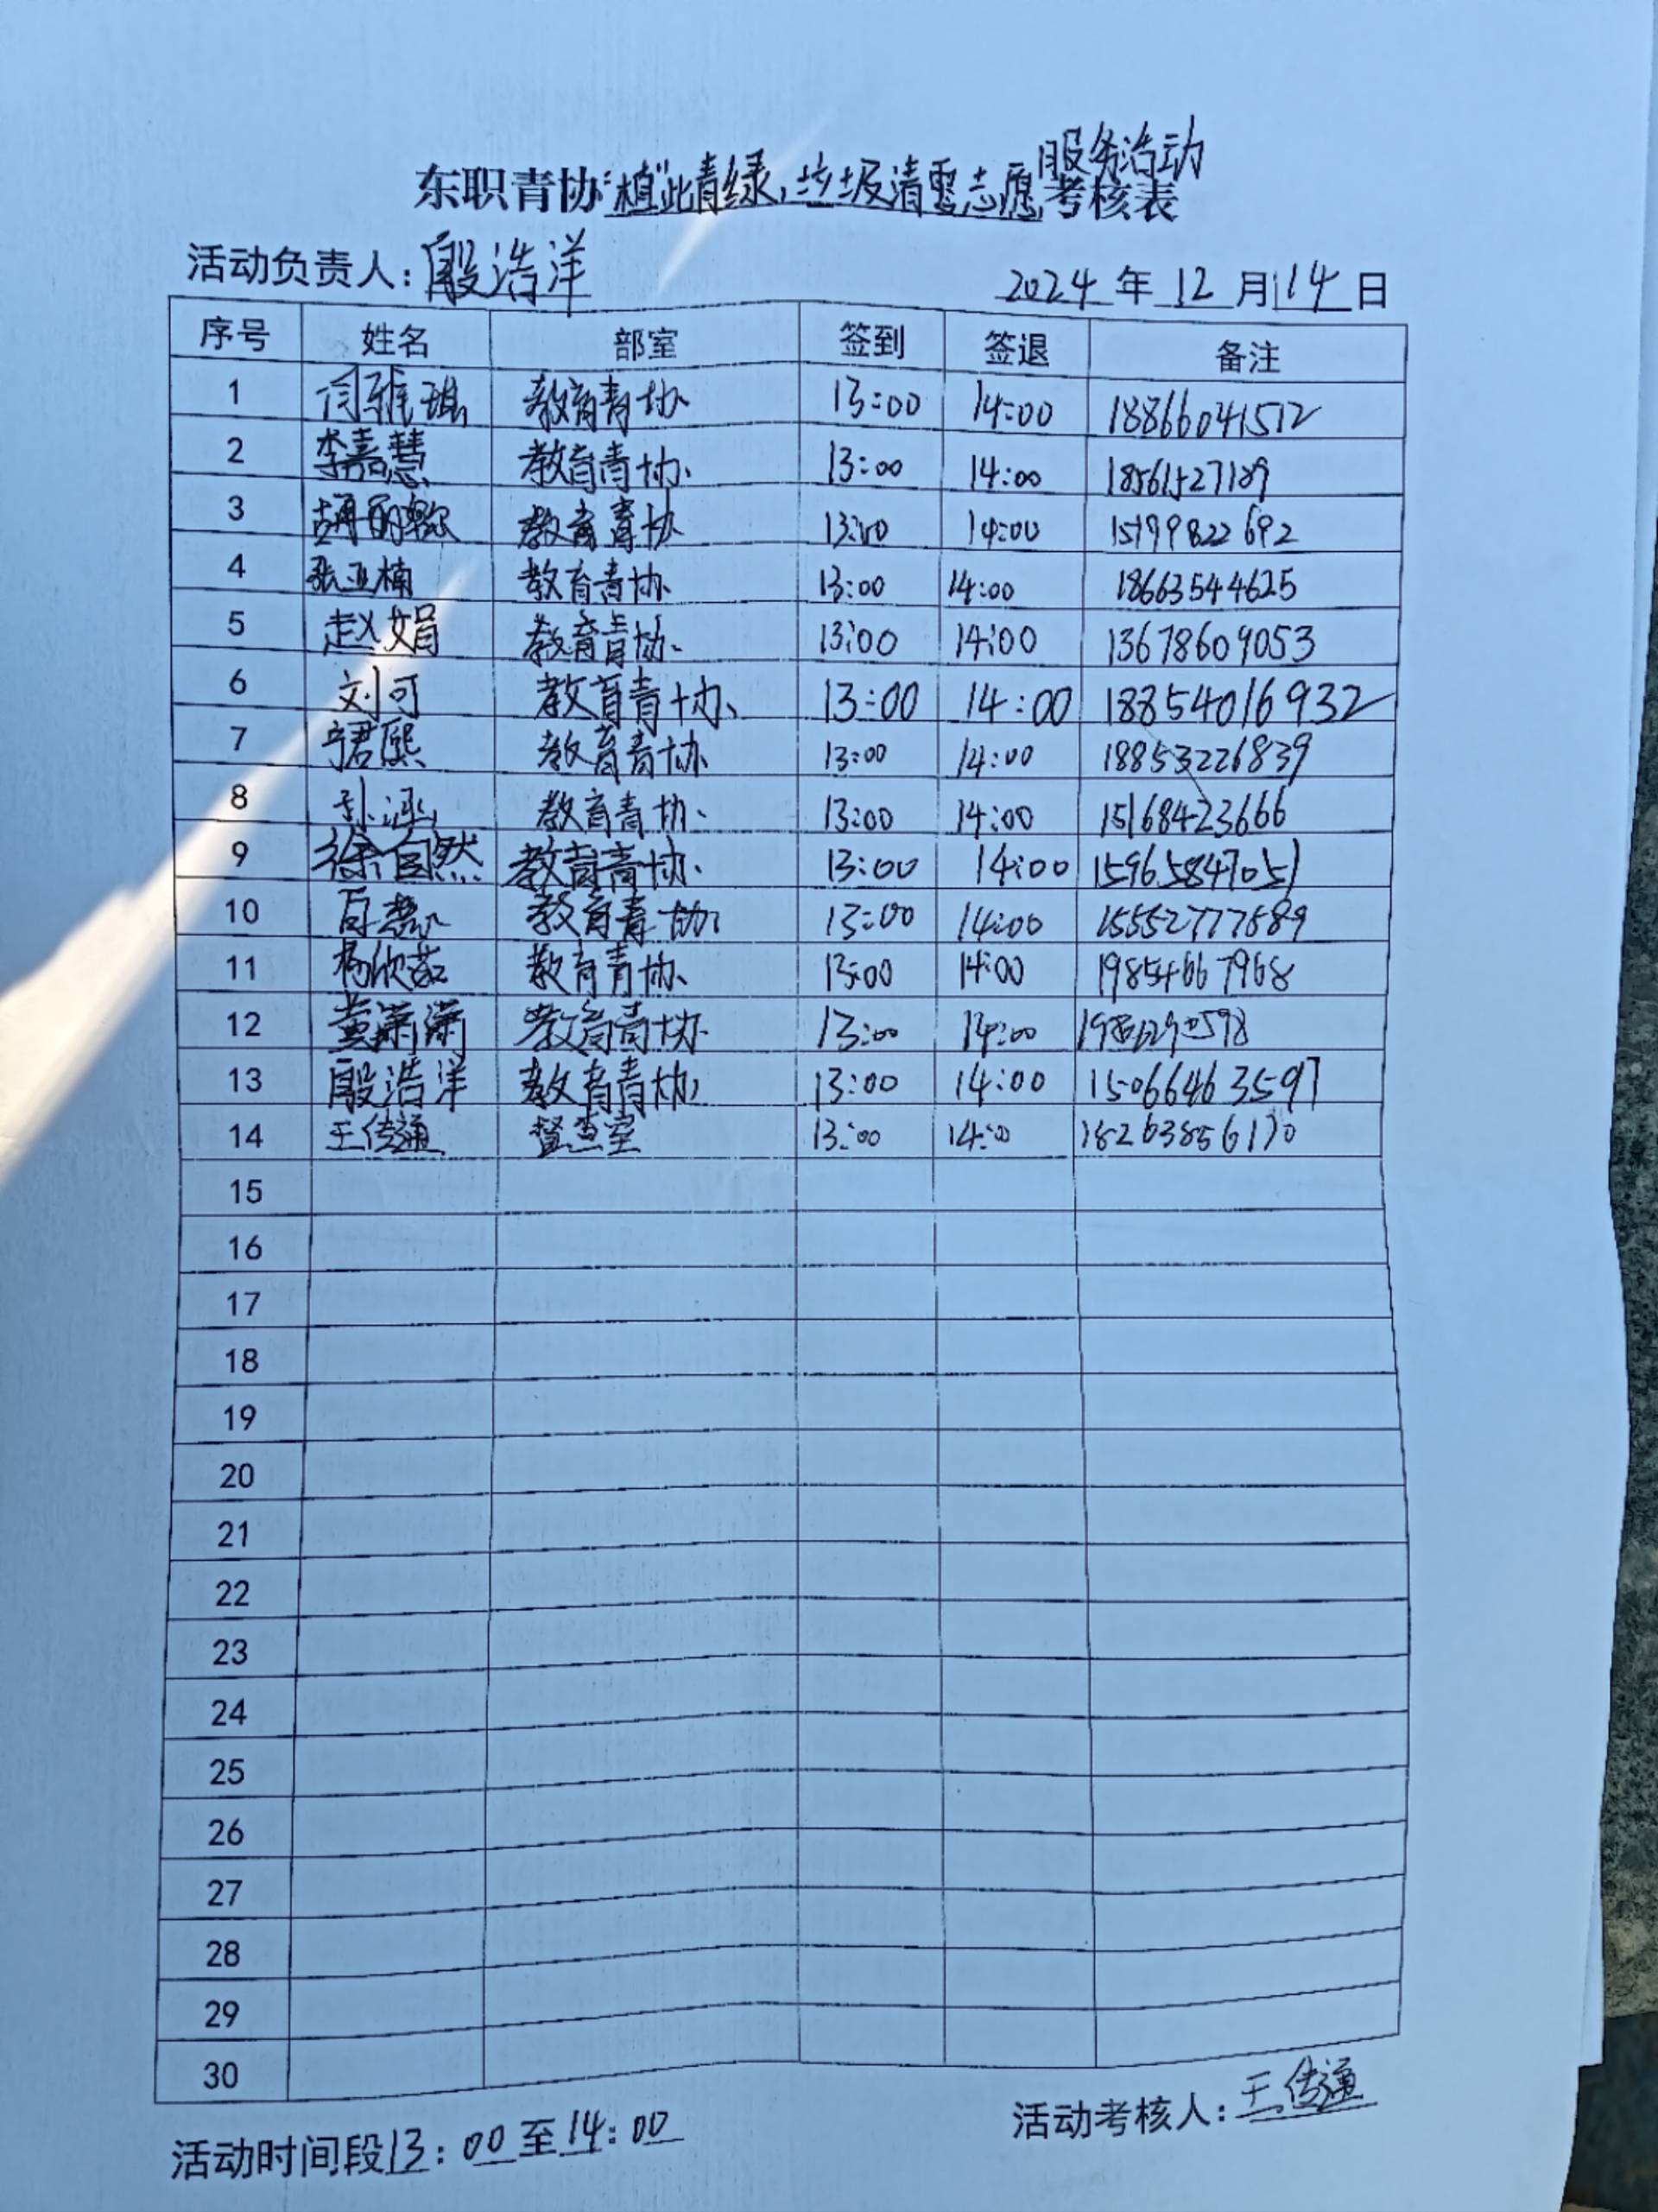 服务活动
东职青协“植”此青绿,垃圾清零志愿考核表
活动负责人:殷浩洋 2024年12月14日
序号 姓名 部室 签到 签退 备注
1 闫雅琪 教育青协 13:00 14:00 18866041512
2 李嘉慧 教育青协 13:00 14:00 18561527189
3 教育青协 13:00 14:00 15199822692
4 张亚楠 教育青协 13:00 14:00 18663544625
5 赵娟 教育青协 13:00 14:00 13678609053
6 刘可 教育青协 13:00 14:00 18854016932
7 宁君熙 教育青协 13:00 14:00 18853226839
8 孙涵 教育青协 13:00 14:00 15168423666
9 徐自然 教育青协 13:00 14:00 15965847051
10 教育青协 13:00 14:00 15552777689
11 杨欣茹 教育青协 13:00 14:00 19854667968
12 黄潇潇 教育青协 13:00 14:00
13 殷浩洋 教育青协 13:00 14:00 15066463597
14 王传通 督查室 13:00 14:00
15
16
17
18
19
20
21
22
23
24
25
26
27
28
29
30
活动时间段13:00至14:00 活动考核人:王传通